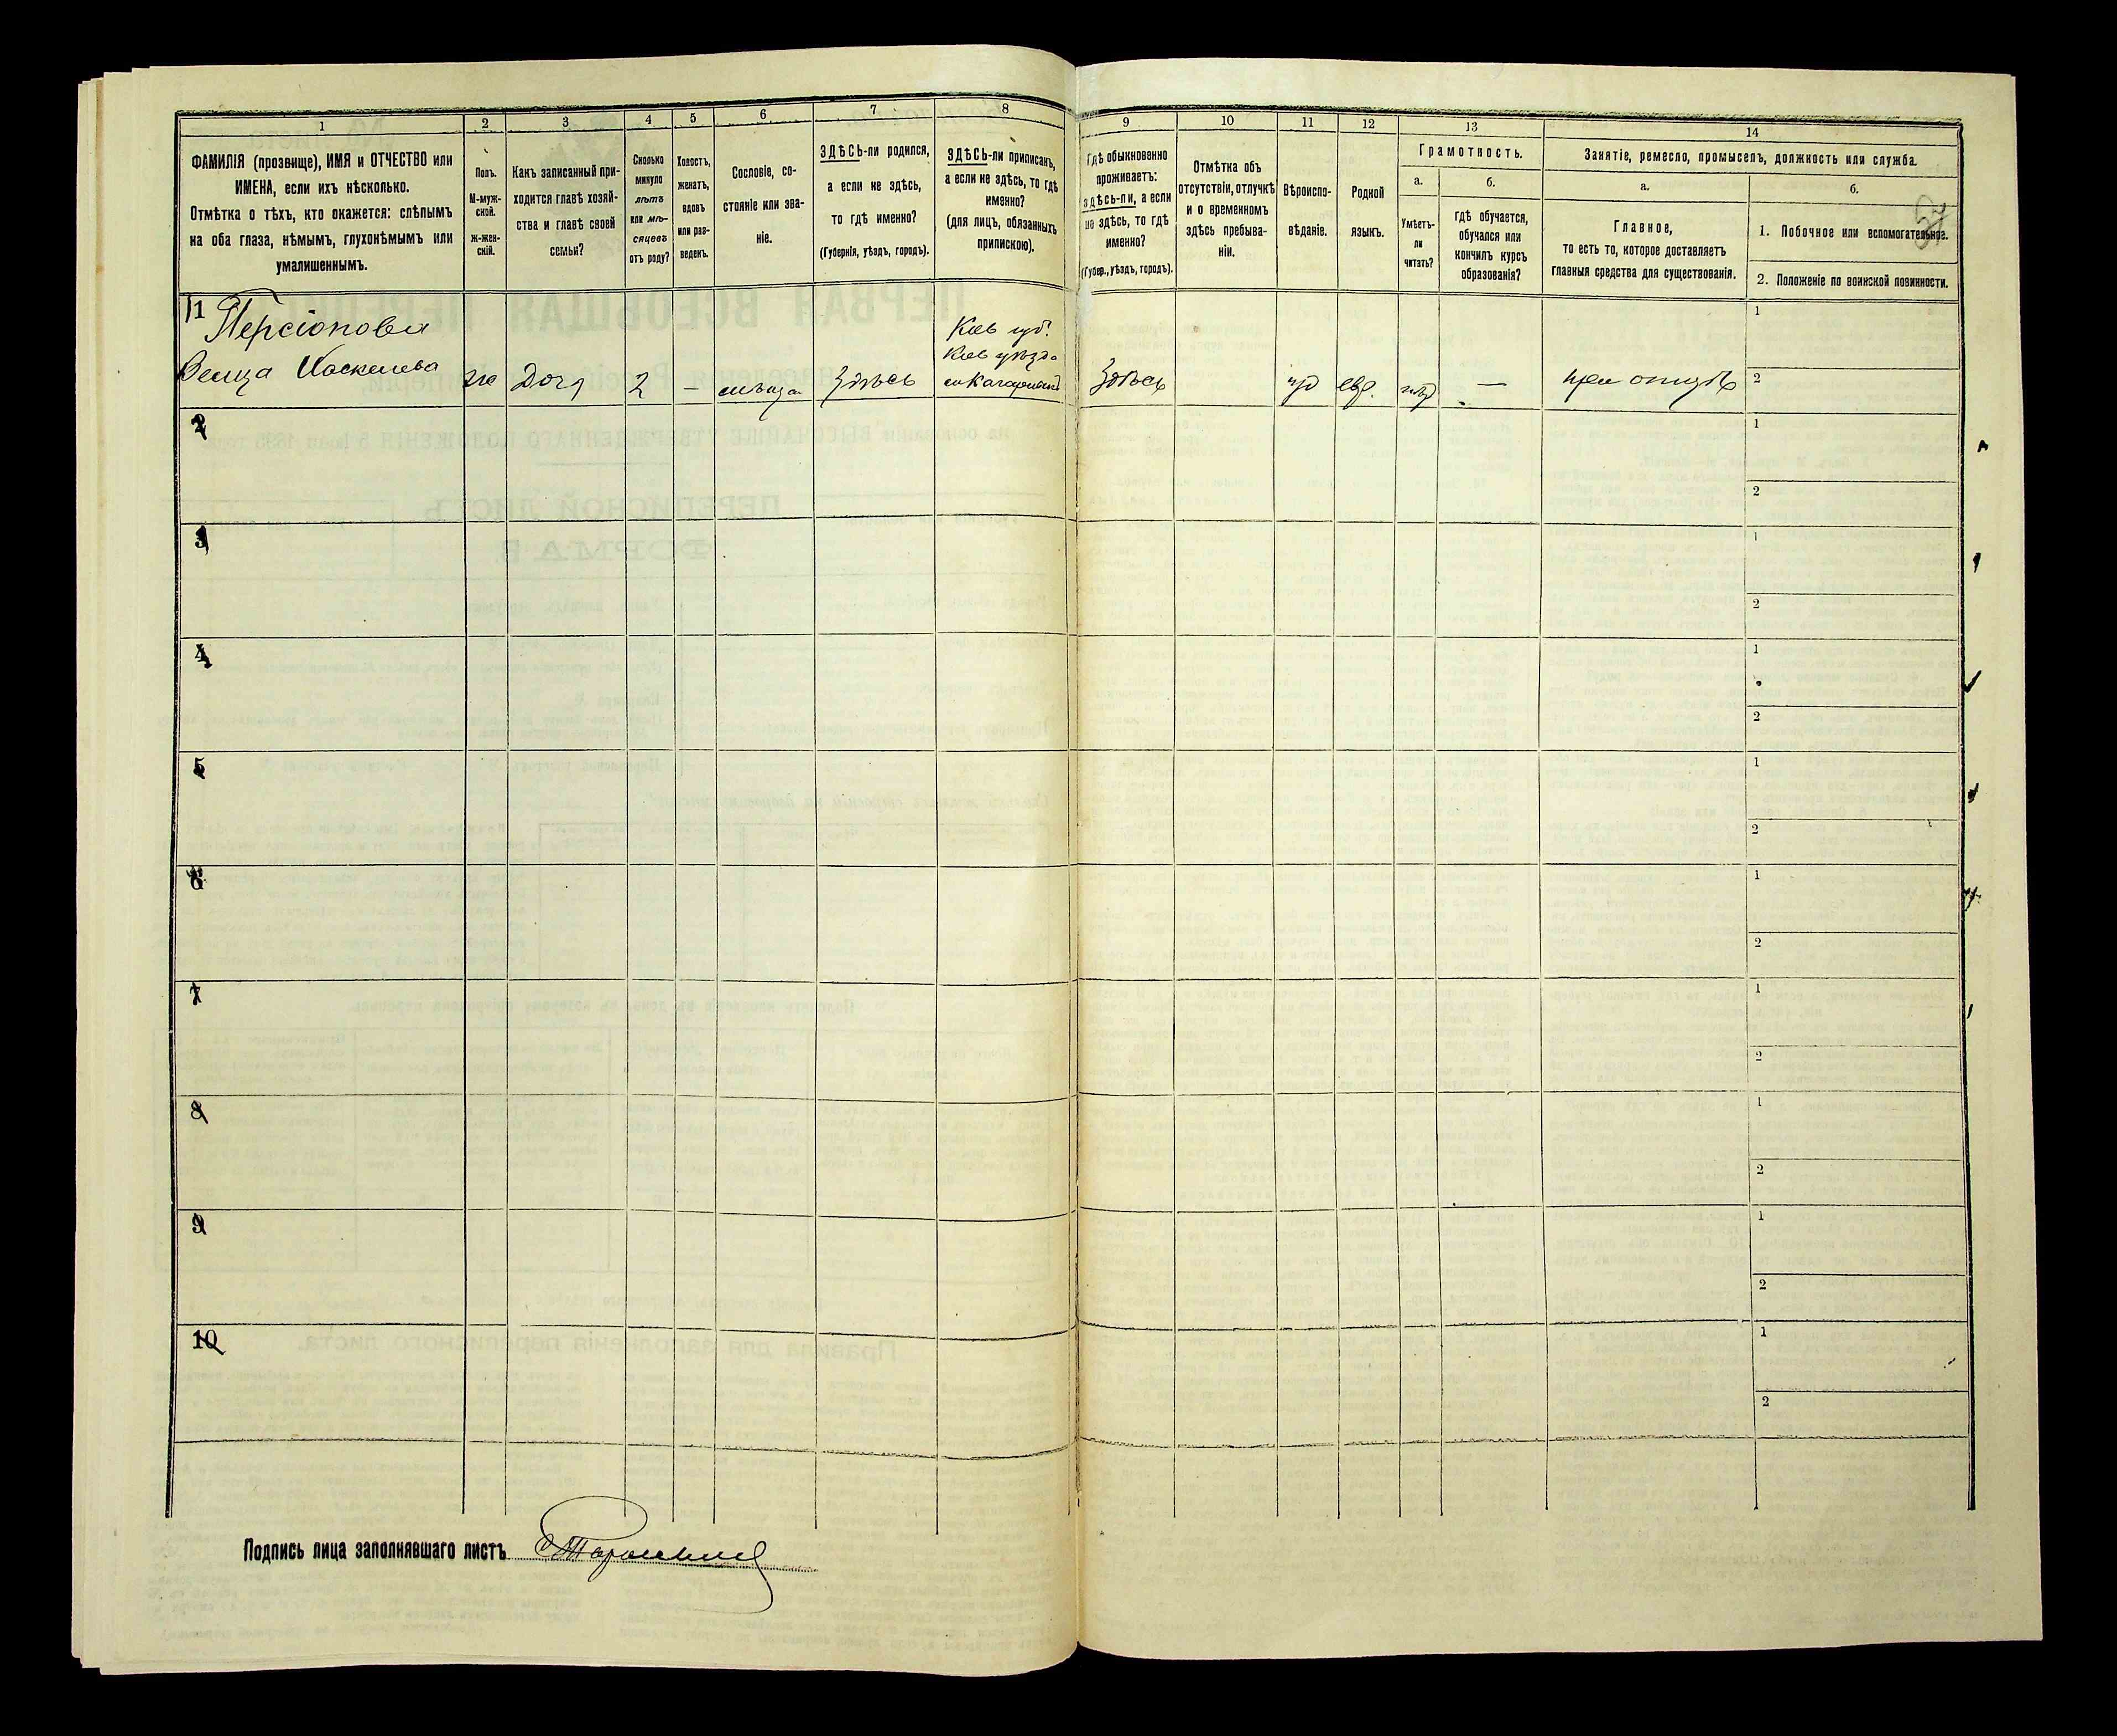 1
2
3
4
5
6
7
8
ФАМИЛІЯ (прозвище), ИМЯ и ОТЧЕСТВО или
ИМЕНА, если ихъ нѣсколько.
Отмѣтка о тѣхъ, кто окажется: слѣпымъ
на оба глаза, нѣмымъ, глухонѣмымъ или
умалишеннымъ.
Полъ.
М-муж-
ской.
Ж-жен-
скій.
Какъ записанный при-
ходится главѣ хозяй-
ства и главѣ своей
семьи?
Сколько
минуло
лѣтъ
или мѣ-
сяцевъ
отъ роду?
Холостъ,
женатъ,
вдовъ
или раз-
веденъ.
Сословіе, со-
стояніе или зва-
ніе.
ЗДѢСЬ-ли родился,
а если не здѣсь,
то гдѣ именно?
(Губернія, уѣздъ, городъ).
ЗДѢСЬ-ли приписанъ,
а если не здѣсь, то гдѣ
именно?
(для лицъ, обязанныхъ
припискою).
9
10
11
12
13
14
Гдѣ обыкновенно
проживаетъ:
здѣсь-ли, а если
не здѣсь, то гдѣ
именно?
(Губер., уѣздъ, городъ).
Отмѣтка объ
отсутствіи, отлучкѣ
и о временномъ
здѣсь пребыва-
ніи.
Вѣроиспо-
вѣданіе.
Родной
языкъ.
Грамотность.
а.
б.
Умѣетъ-
ли
читать?
гдѣ обучается,
обучался или
кончилъ курсъ
образованія?
Занятіе, ремесло, промыселъ, должность или служба.
а.
б.
Главное,
то есть то, которое доставляетъ
главныя средства для существованія.
1. Побочное или вспомогательное.
2. Положеніе по воинской повинности.
11
Кіев губ.
Кіев уѣзд
Дочь 2 — Здѣсь
Здѣсь іуд евр. нѣт — при отцѣ
1
2
2
1
2
3
1
2
4
1
2
5
1
2
6
1
2
7
1
2
8
1
2
9
1
2
10
1
2
Подпись лица заполнявшаго листъ